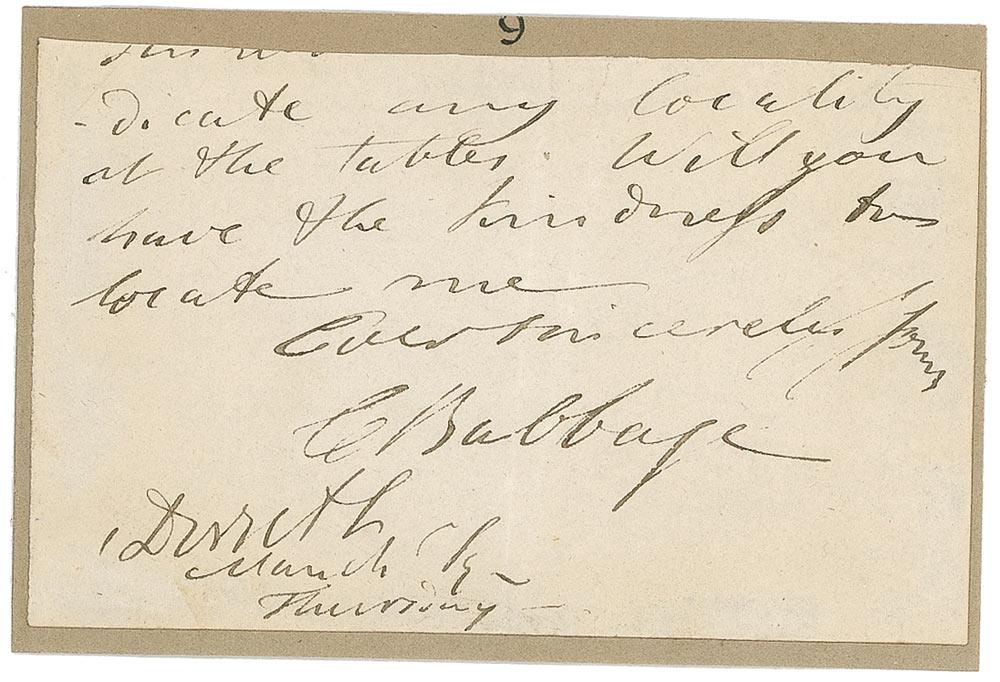 9
-dicate any locality
at the tables. Will you
have the kindness to
locate me
Ever sincerely yours
C Babbage
Dorset
March
Thursday